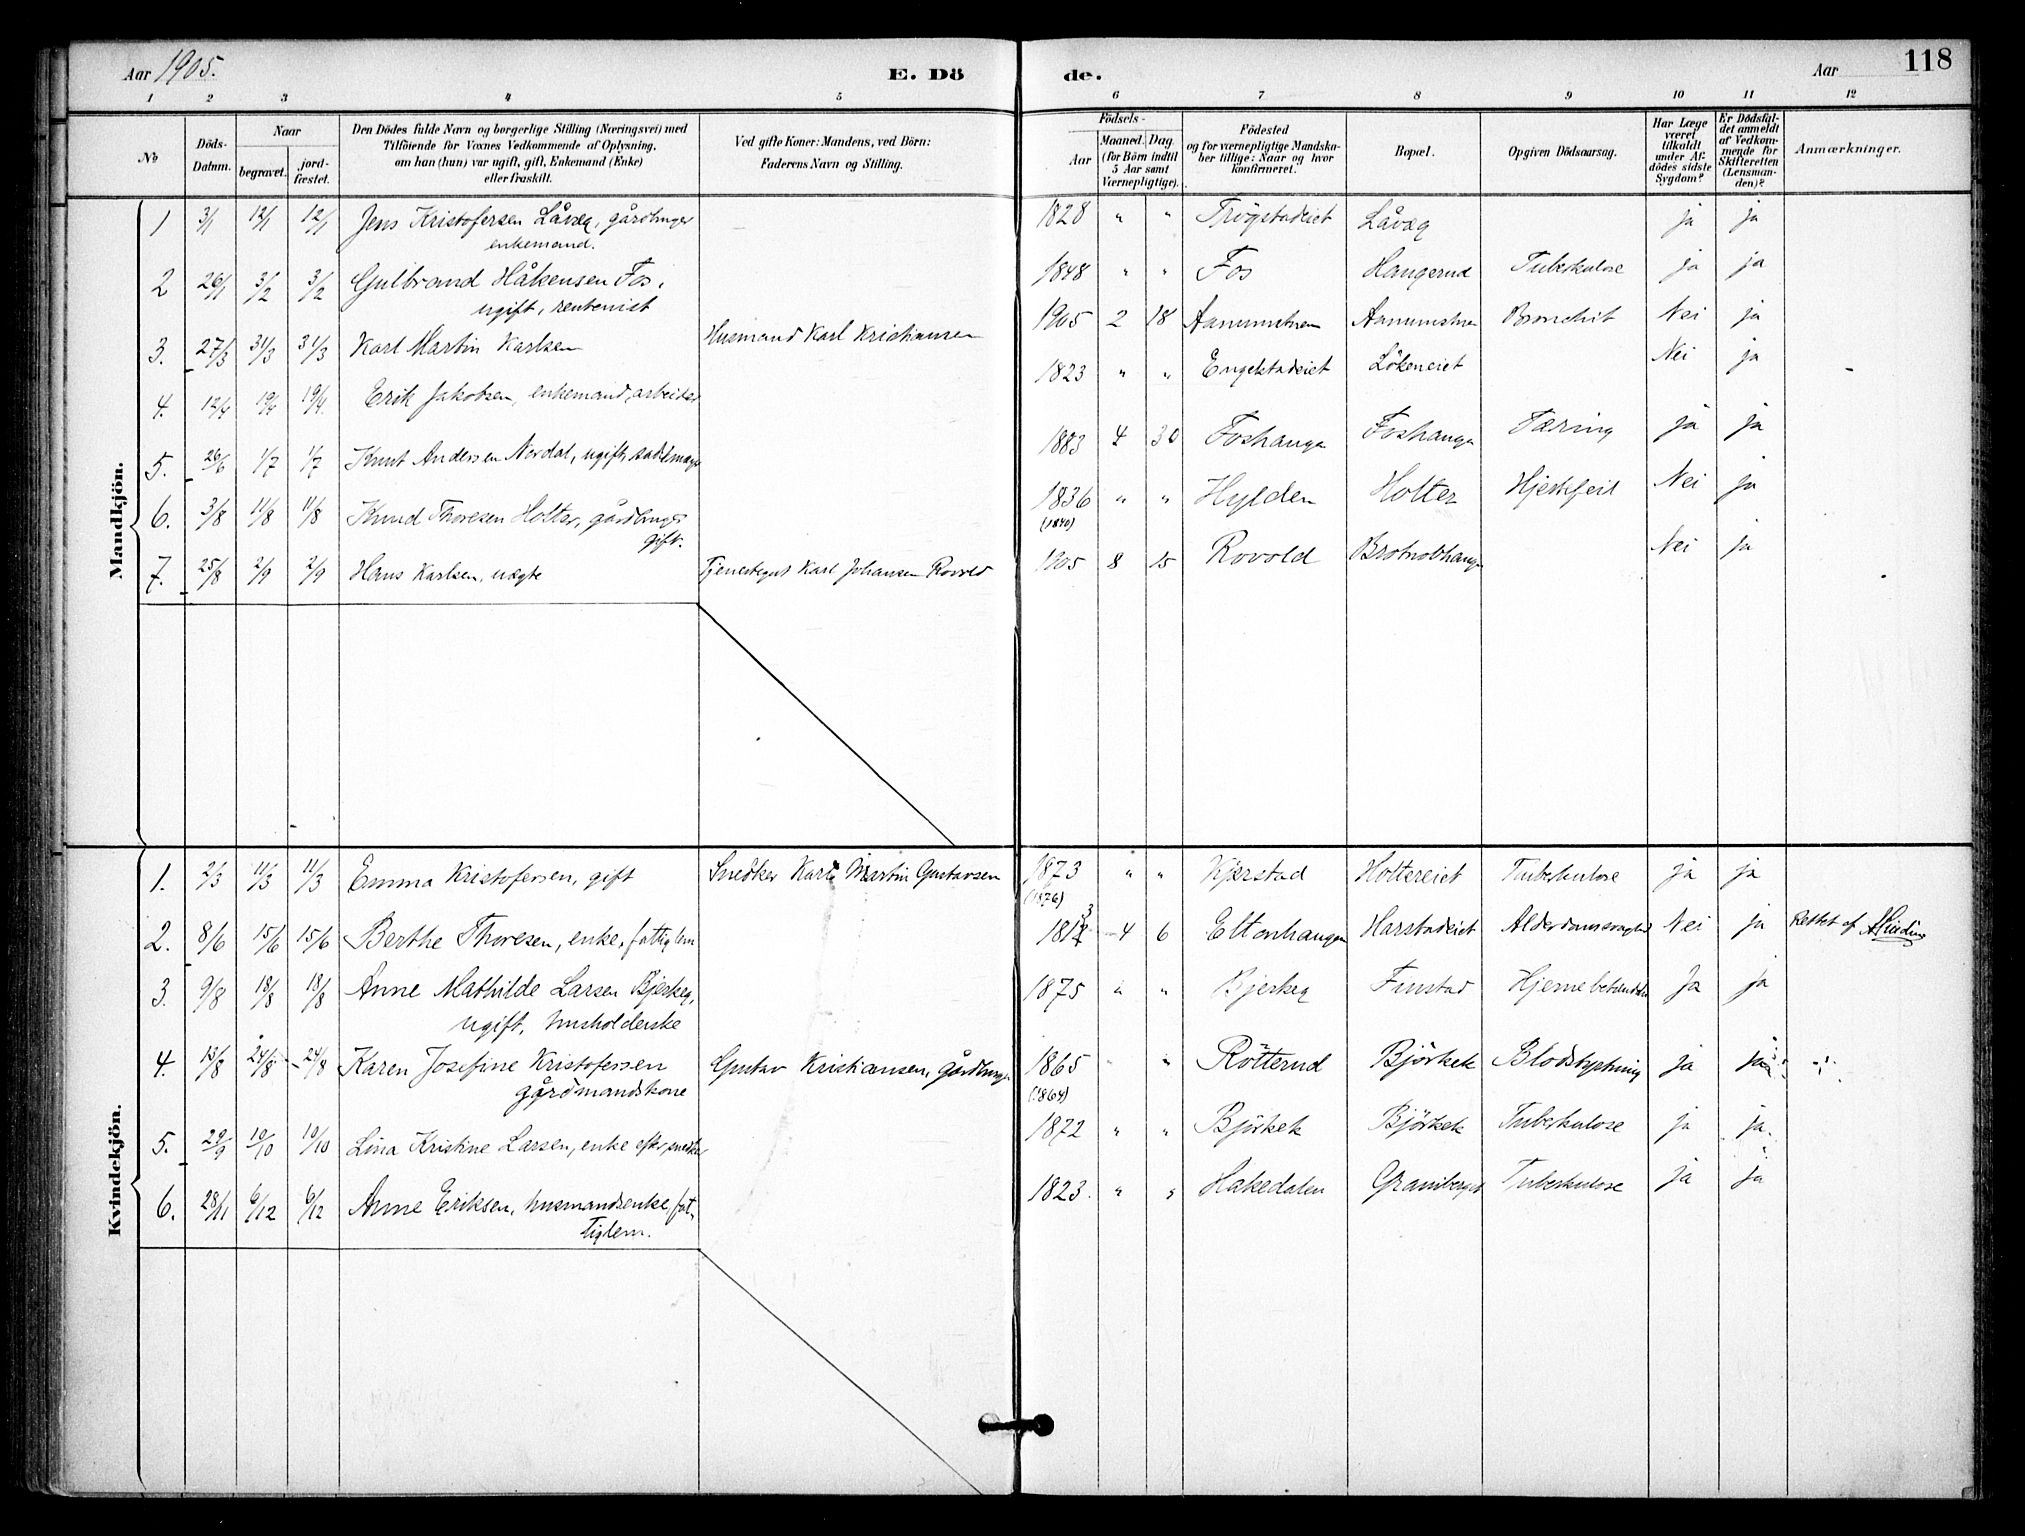 Aar 1905.
E. Döde.
Aar
118
1 2 3 4 5 6 7 8 9 10 11 12
No
Döds-Datum.
Naar
begravet.
jordfæstet.
Den Dödes fulde Navn og borgerlige Stilling (Næringsvei) med
Tilföiende for Voxnes Vedkommende af Oplysning,
om han (hun) var ugift, gift, Enkemand (Enke)
eller fraskilt.
Ved gifte Koner: Mandens, ved Börn:
Faderens Navn og Stilling.
Födsels-
Aar
Maaned. Dag.
(for Börn indtil
5 Aar samt
Værnepligtige).
Födested
og for værnepligtige Mandska-
ber tillige: Naar og hvor
konfirmeret.
Bopæl.
Opgiven Dödsaarsag.
Har Læge
været
tilkaldt
under Af-
dödes sidste
Sygdom?
Er Dödsfal-
det anmeldt
af Vedkom-
mende for
Skifteretten
(Lensman-
den)?
Anmærkninger.
Mandkjön.
1 3/1 12/1 12/1 Jens Kristofersen Låvæg, gårdbruger 1828 " " Trögstadeiet Låvæg ja ja
enkemand.
2 26/1 3/2 3/2 Gulbrand Håkensen Fos, 1848 " " Fos Haugerud Tuberkulose ja ja
ugift, rentenist
3. 27/3 31/3 31/3 Karl Martin Karlsen Husmand Karl Kristiansen 1905 2 18 Aanumstuen Aanumstuen Bronchit Nei ja
4. 12/4 19/4 19/4. Erik Jakobsen, enkemand, arbeider 1823 " " Engelstadeiet Lökeneiet Nei ja
5. 26/6 1/7 1/7 Knut Andersen Nordal, ugift, sadelmager 1883 4 30 Foshauga Foshauga Tæring ja ja
6. 3/8 11/8 11/8 Knud Thoresen Holter, gårdbruger 1836 " " Hylden Holter Hjertefeil Nei ja
gift. (1840)
7. 25/8 2/9 2/9 Hans Karlsen, uægte Tjenestegut Karl Johansen Rovold 1905 8 15 Rovold Nei ja
Kvindekjön.
1. 2/3 11/3 11/3 Emma Kristofersen, gift Snedker Karl Martin Gustavsen 1873 " " Kjærstad Holtereiet Tuberkulose ja ja
(1876)
2. 8/6 15/6 15/6 Berthe Thoresen, enke, fattiglem 4 6 Eltonhaugen Harstadeiet Alderdomssvaghed Nei ja Rettet af
3. 9/8 18/8 18/8 Anne Mathilde Larsen Bjerkeg, 1875 " " Bjerkeg Finstad Hjernebetændelse Ja ja
ugift, husholderske
4. 13/8 24/8 24/8 Karen Josefine Kristofersen Gustav Kristiansen, gårdbruger 1865 " " Rötterud Björkek Blodstyrtning ja ja
gårdmandskone (1864)
5. 29/9 10/10 10/10 Lina Kristine Larsen, enke efter snedker 1872 " " Björkek Björkek Tuberkulose ja ja.
6. 28/11 6/12 6/12 Anne Eriksen, husmandsenke, fat- 1823. " " Hakedalen Graniberget Tuberkulose ja ja
tiglem.